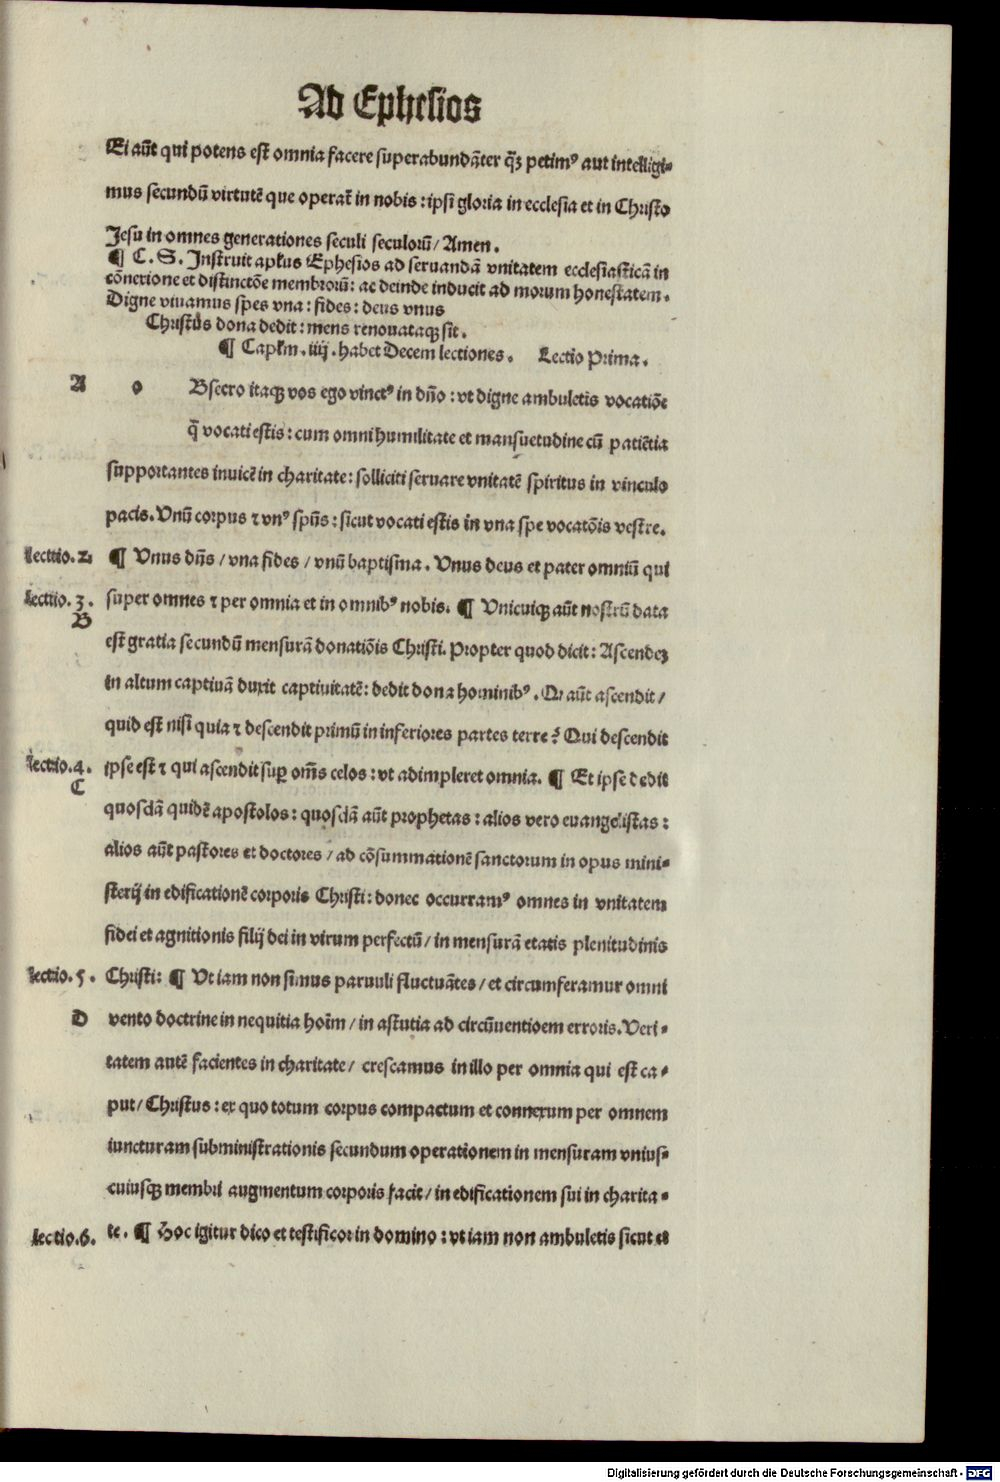 Ad Ephesios
Ei aūt qui potens est omnia facere superabundāter q̄ꝫ petimꝰ aut intelligi-
mus secundū virtutē que operať in nobis : ipsi gloria in ecclesia et in Christo
Jesu in omnes generationes seculi seculorū / Amen .
¶ C . S . Instruit aplus Ephesios ad seruandā vnitatem ecclesiasticā in
cōnexione et distinctōe membrorū : ac deinde inducit ad morum honestatem .
Digne viuamus spes vna : fides : deus vnus
Christus dona dedit : mens renouataqꝫ sit .
¶ Caplm . iiij . habet Decem lectiones . Lectio Prima .
A o Bsecro itaqꝫ vos ego vinctꝰ in dn̄o : vt digne ambuletis vocatiōe
q̄ vocati estis : cum omni humilitate et mansuetudine cū patiētia
supportantes inuicē in charitate : solliciti seruare vnitatē spiritus in vinculo
pacis . Vnū corpus ⁊ vnꝰ spūs : sicut vocati estis in vna spe vocatōis vestre .
Lectio . 2 . ¶ Vnus dn̄s / vna fides / vnū baptisma . Vnus deus et pater omniū qui
Lectio . 3 . super omnes ⁊ per omnia et in omnibꝰ nobis . ¶ Vnicuiqꝫ aūt nostrū data
B
est gratia secundū mensurā donatiōis Christi . Propter quod dicit : Ascendēs
in altum captiuā duxit captiuitatē : dedit dona hominibꝰ . Qđ aūt ascendit /
quid est nisi quia ⁊ descendit primū in inferiores partes terre ? Qui descendit
Lectio . 4 . ipse est ⁊ qui ascendit sup̱ om̄s celos : vt adimpleret omnia . ¶ Et ipse dedit
C
quosdā quidē apostolos : quosdā aūt prophetas : alios vero euangelistas :
alios aūt pastores et doctores / ad cōsummationē sanctorum in opus mini-
sterij in edificationē corporis Christi : donec occurramꝰ omnes in vnitatem
fidei et agnitionis filij dei in virum perfectū / in mensurā etatis plenitudinis
Lectio . 5 . Christi : ¶ Vt iam non simus paruuli fluctuātes / et circumferamur omni
D vento doctrine in nequitia hoīm / in astutia ad circūuentioem erroris . Veri-
tatem autē facientes in charitate / crescamus in illo per omnia qui est ca-
put / Christus : ex quo totum corpus compactum et connexum per omnem
iuncturam subministrationis secundum operationem in mensuram vnius-
cuiusqꝫ membri augmentum corporis facit / in edificationem sui in charita-
Lectio . 6 . te . ¶ Hoc igitur dico et testificor in domino : vt iam non ambuletis sicut et
Digitalisierung gefördert durch die Deutsche Forschungsgemeinschaft - DFG